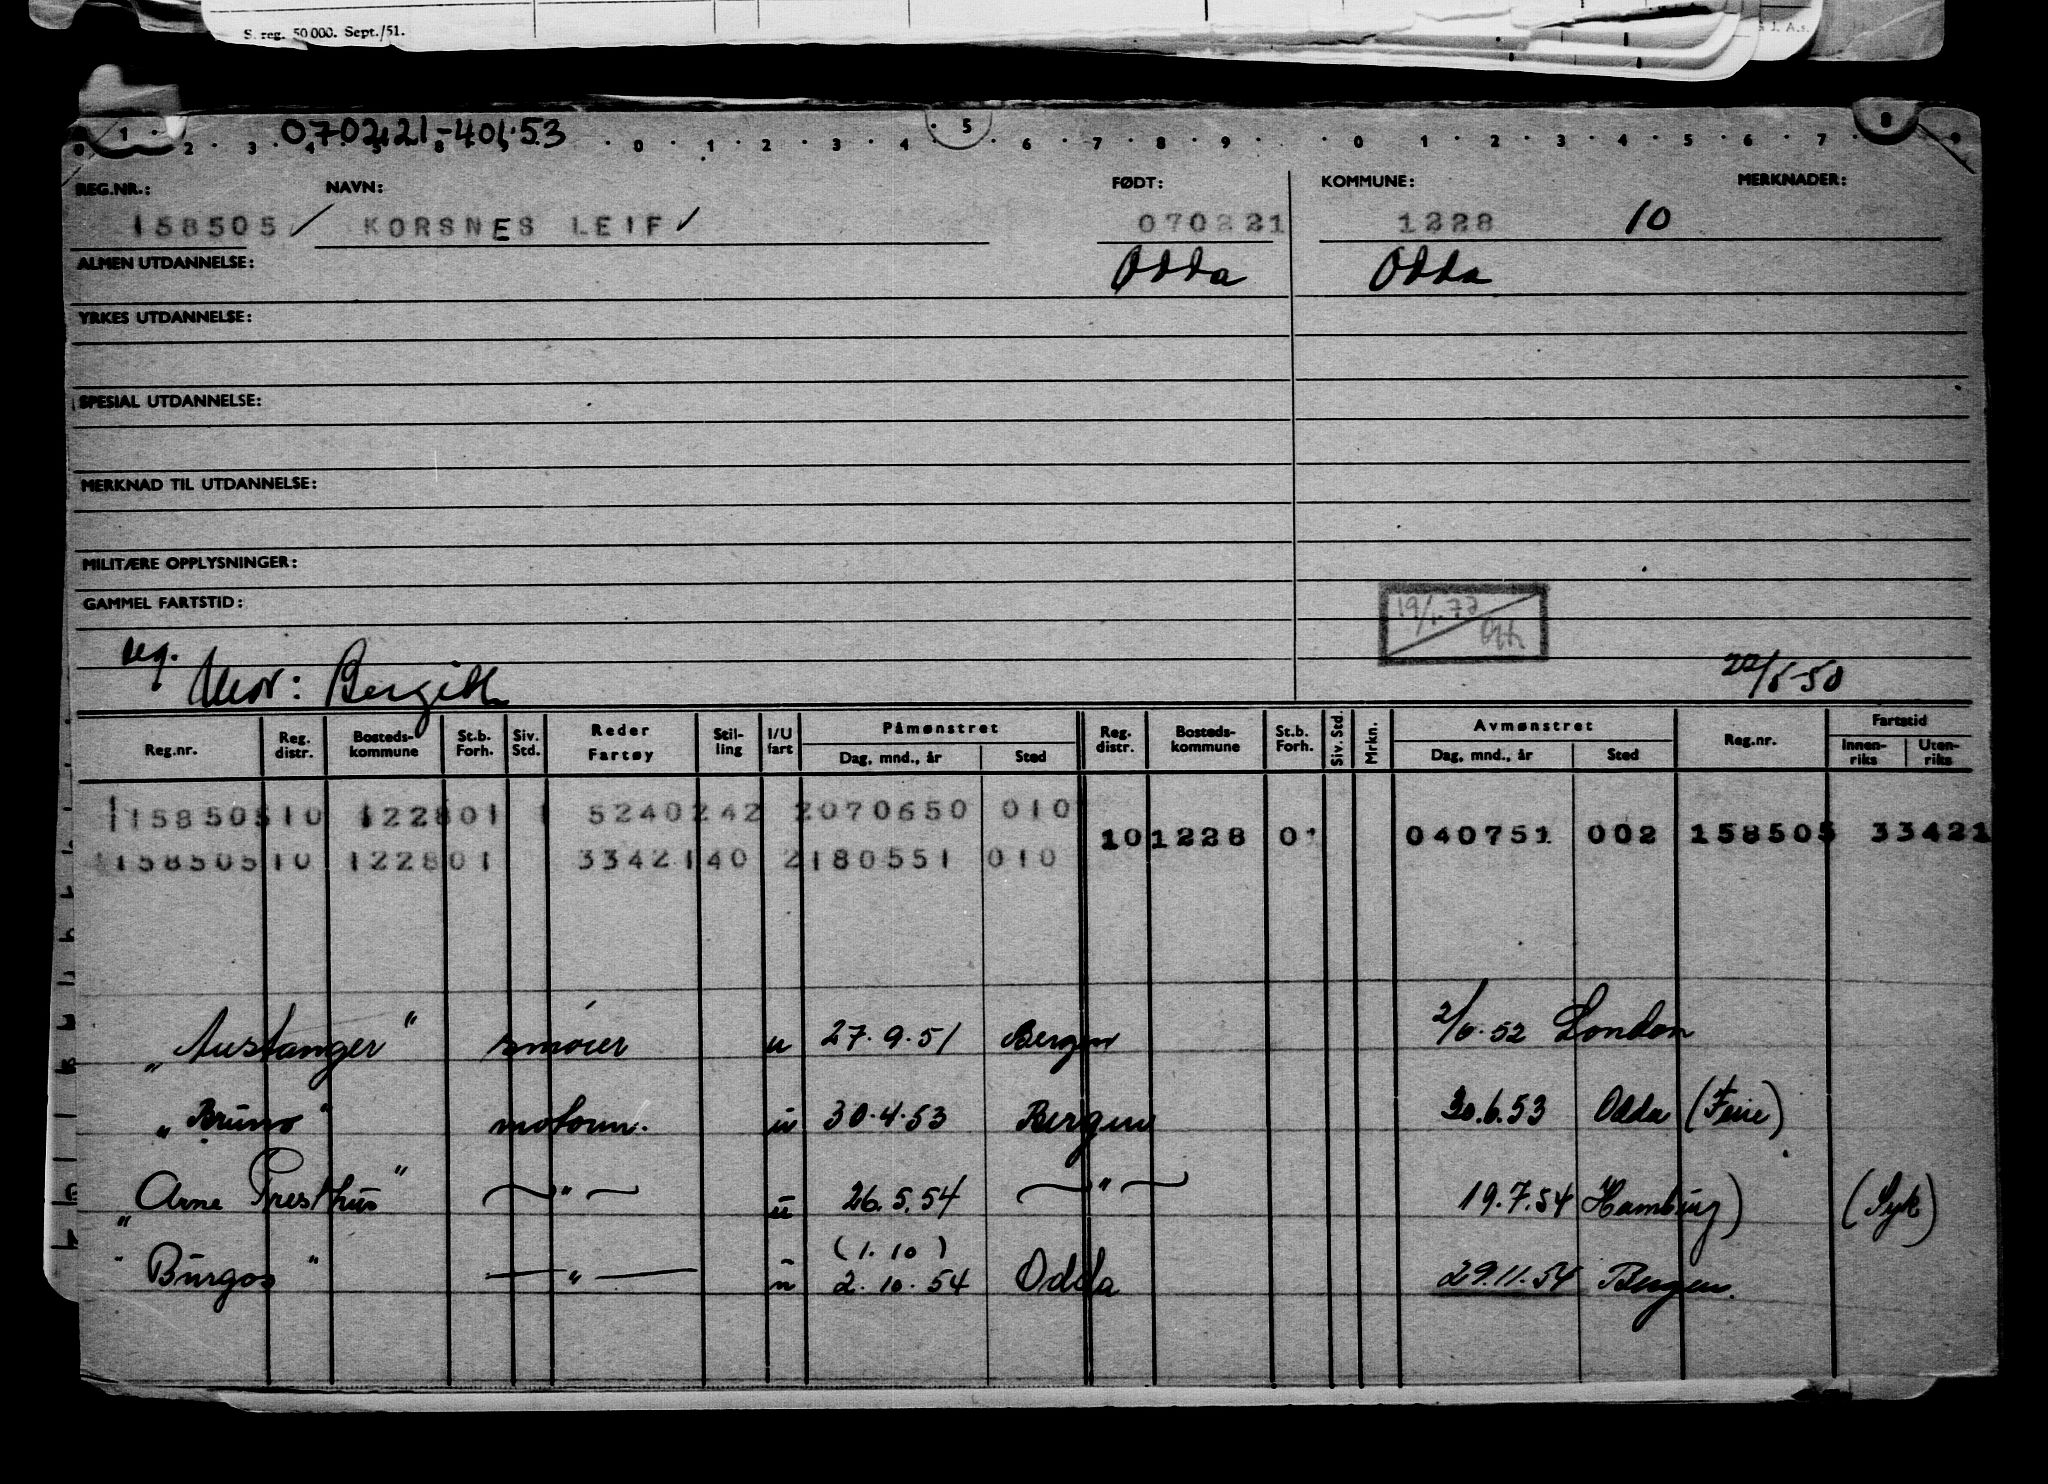 S. reg. 50 000. Sept./51.
S J. A.s.
070221-401.53
1 2 3 4 5 6 0 1 2 3 4 5 6 7 8 9 0 1 2 3 4 5 6 7 8 9
REG.NR.: NAVN: FØDT: KOMMUNE: MERKNADER:
158505 ✓ KORSNES LEIF ✓ 070221 1228 10
ALMEN UTDANNELSE: Odda Odda
YRKES UTDANNELSE:
SPESIAL UTDANNELSE:
MERKNAD TIL UTDANNELSE:
MILITÆRE OPPLYSNINGER:
GAMMEL FARTSTID:
19/1.72
reg.
Mor: Bergith 22/6-50
Reg.nr. Reg. distr. Bosteds-kommune St.b. Forh. Siv. Std. Reder Fartøy Stil-ling I/U fart Påmønstret Dag, mnd., år Sted Reg. distr. Bosteds-kommune St.b. Forh. Siv. Std. Mrkn. Avmønstret Dag, mnd., år Sted Reg.nr. Fartstid Innen-riks Uten-riks
115850510 122801 1 5240242 2070650 010
101228 01 040751 002 158505 33421
115850510 122801 3342140 2180551 010
„Austanger" smører u 27.9.51 Bergen 2/6.52 London
„Bruno" motorm. u 30.4.53 Bergen 30.6.53 Odda (Ferie)
„Arne Presthus" —"— u 26.5.54 —"— 19.7.54 Hamburg) (Syk)
(1.10)
"Burgos" —"— u 2.10.54 Odda 29.11.54 Bergen.